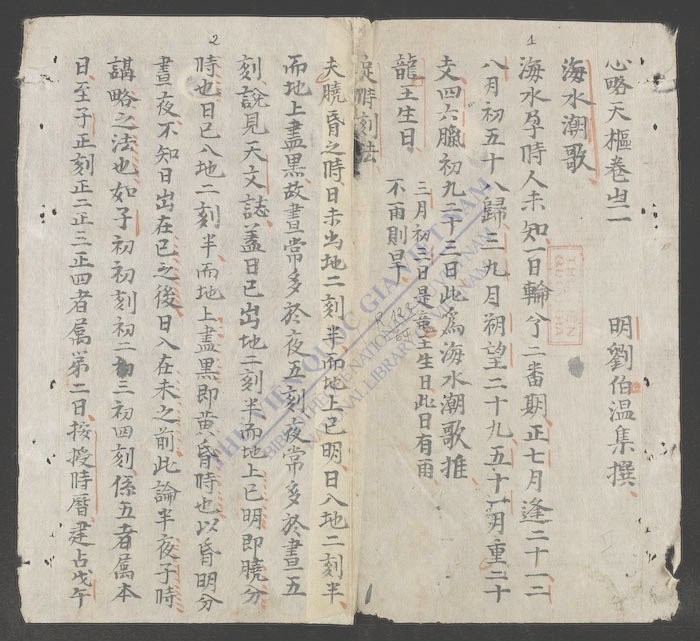 1
心略天樞卷之一 明劉伯温集撰
海水潮歌
海水孕時人未知一日輪兮二番期正七月逢二十一二
八月初五十八歸三九月朔望二十九五十一月重二十
支四六臘初九二十三日此爲海水潮歌推
龍王生日 三月初三日是竜王生日此日有雨
不雨則旱
定時刻法
2
夫曉昏之時日未出地二刻半而地上已明日入地二刻半
而地上盡黑故晝常多於夜五刻夜常多於晝五
刻說見天文誌蓋日已出地二刻半而地上已明即曉分
時也日已入地二刻半而地上盡黑即黄昏時也以昏明分
晝夜不知日出在巳之後日入在未之前此論半夜子時
謀略之法也如子初初刻初二初三初四刻係五者属本
日至子正刻正二正三正四者属第二日按授時曆建占戊午
THƯ VIỆN QUỐC GIA VIỆT NAM
NATIONAL LIBRARY OF VIETNAM